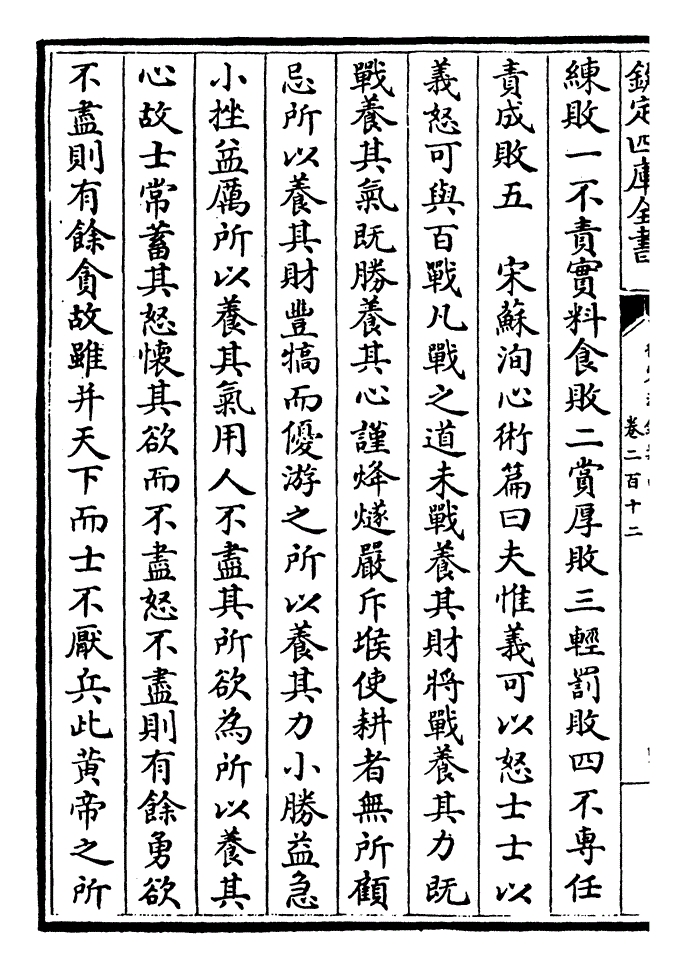 欽定四庫全書
卷二百十二
練敗一不責實料食敗二賞厚敗三輕罰敗四不專任
責成敗五　宋蘇洵心術篇曰夫惟義可以怒士士以
義怒可與百戰凡戰之道未戰養其財將戰養其力既
戰養其氣既勝養其心謹烽燧嚴斥堠使耕者無所顧
忌所以養其財豐犒而優游之所以養其力小勝益急
小挫益厲所以養其氣用人不盡其所欲為所以養其
心故士常蓄其怒懷其欲而不盡怒不盡則有餘勇欲
不盡則有餘貪故雖并天下而士不厭兵此黄帝之所